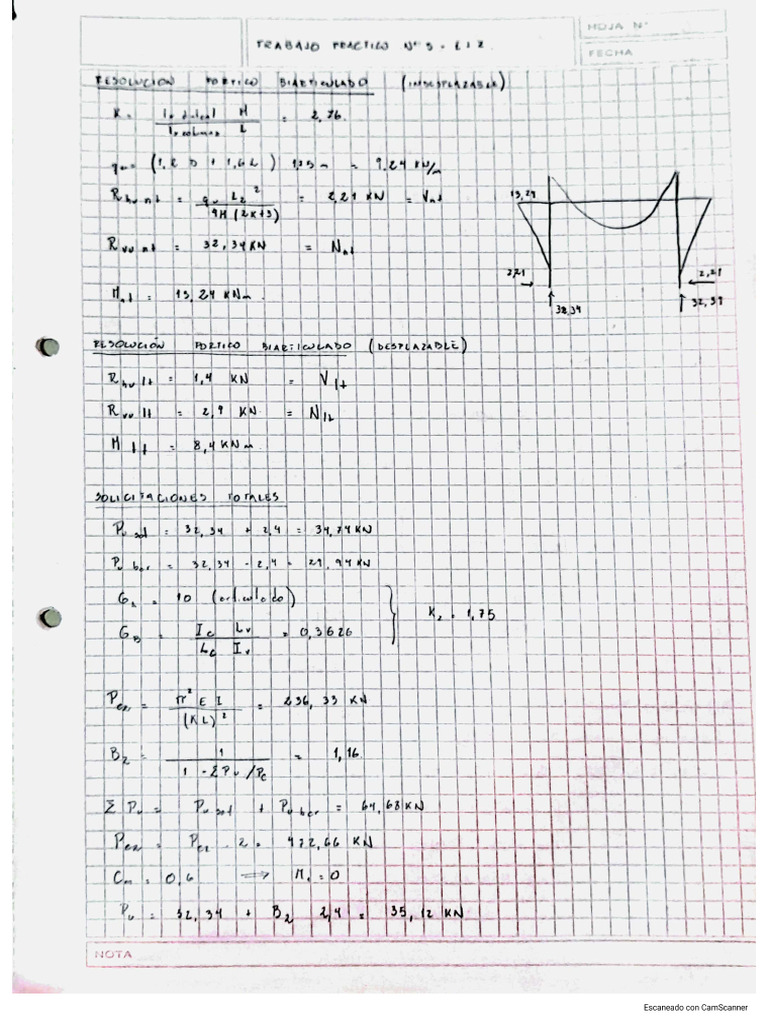 HOJA N°
TRABAJO PRACTICO N° 5 - EJ 2.
FECHA
RESOLUCIÓN PORTICO BIARTICULADO (INDESPLAZABLE)
K = Ix dintel H / Ix columna L = 2,76
qu = (1,2 D + 1,6 L) 1,75 m = 9,24 KN/m
Rhu nt = qu L2² / 4H (2K+3) = 2,21 KN = Vnt
Rvu nt = 32,34 KN = Nnt
Mnt = 13,24 KNm
13,24
2,21
32,34
2,21
32,34
RESOLUCIÓN PORTICO BIARTICULADO (DESPLAZABLE)
Rhu lt = 1,4 KN = Vlt
Rvu lt = 2,4 KN = Nlt
Mlt = 8,4 KNm
SOLICITACIONES TOTALES
Pu sot = 32,34 + 2,4 = 34,74 KN
Pu bar = 32,34 - 2,4 = 29,94 KN
GA = 10 (articulado)
GB = Ic Lv / Lc Iv = 0,3626
K2 = 1,75
Pe2 = π² E I / (KL)² = 236,33 KN
B2 = 1 / 1 - ΣPu/Pe = 1,16
Σ Pu = Pu sot + Pu bar = 64,68 KN
Pe2 = Pe2 . 2 = 472,66 KN
Cm = 0,6 ⟹ M1 = 0
Pu = 32,34 + B2 2,4 = 35,12 KN
NOTA
Escaneado con CamScanner